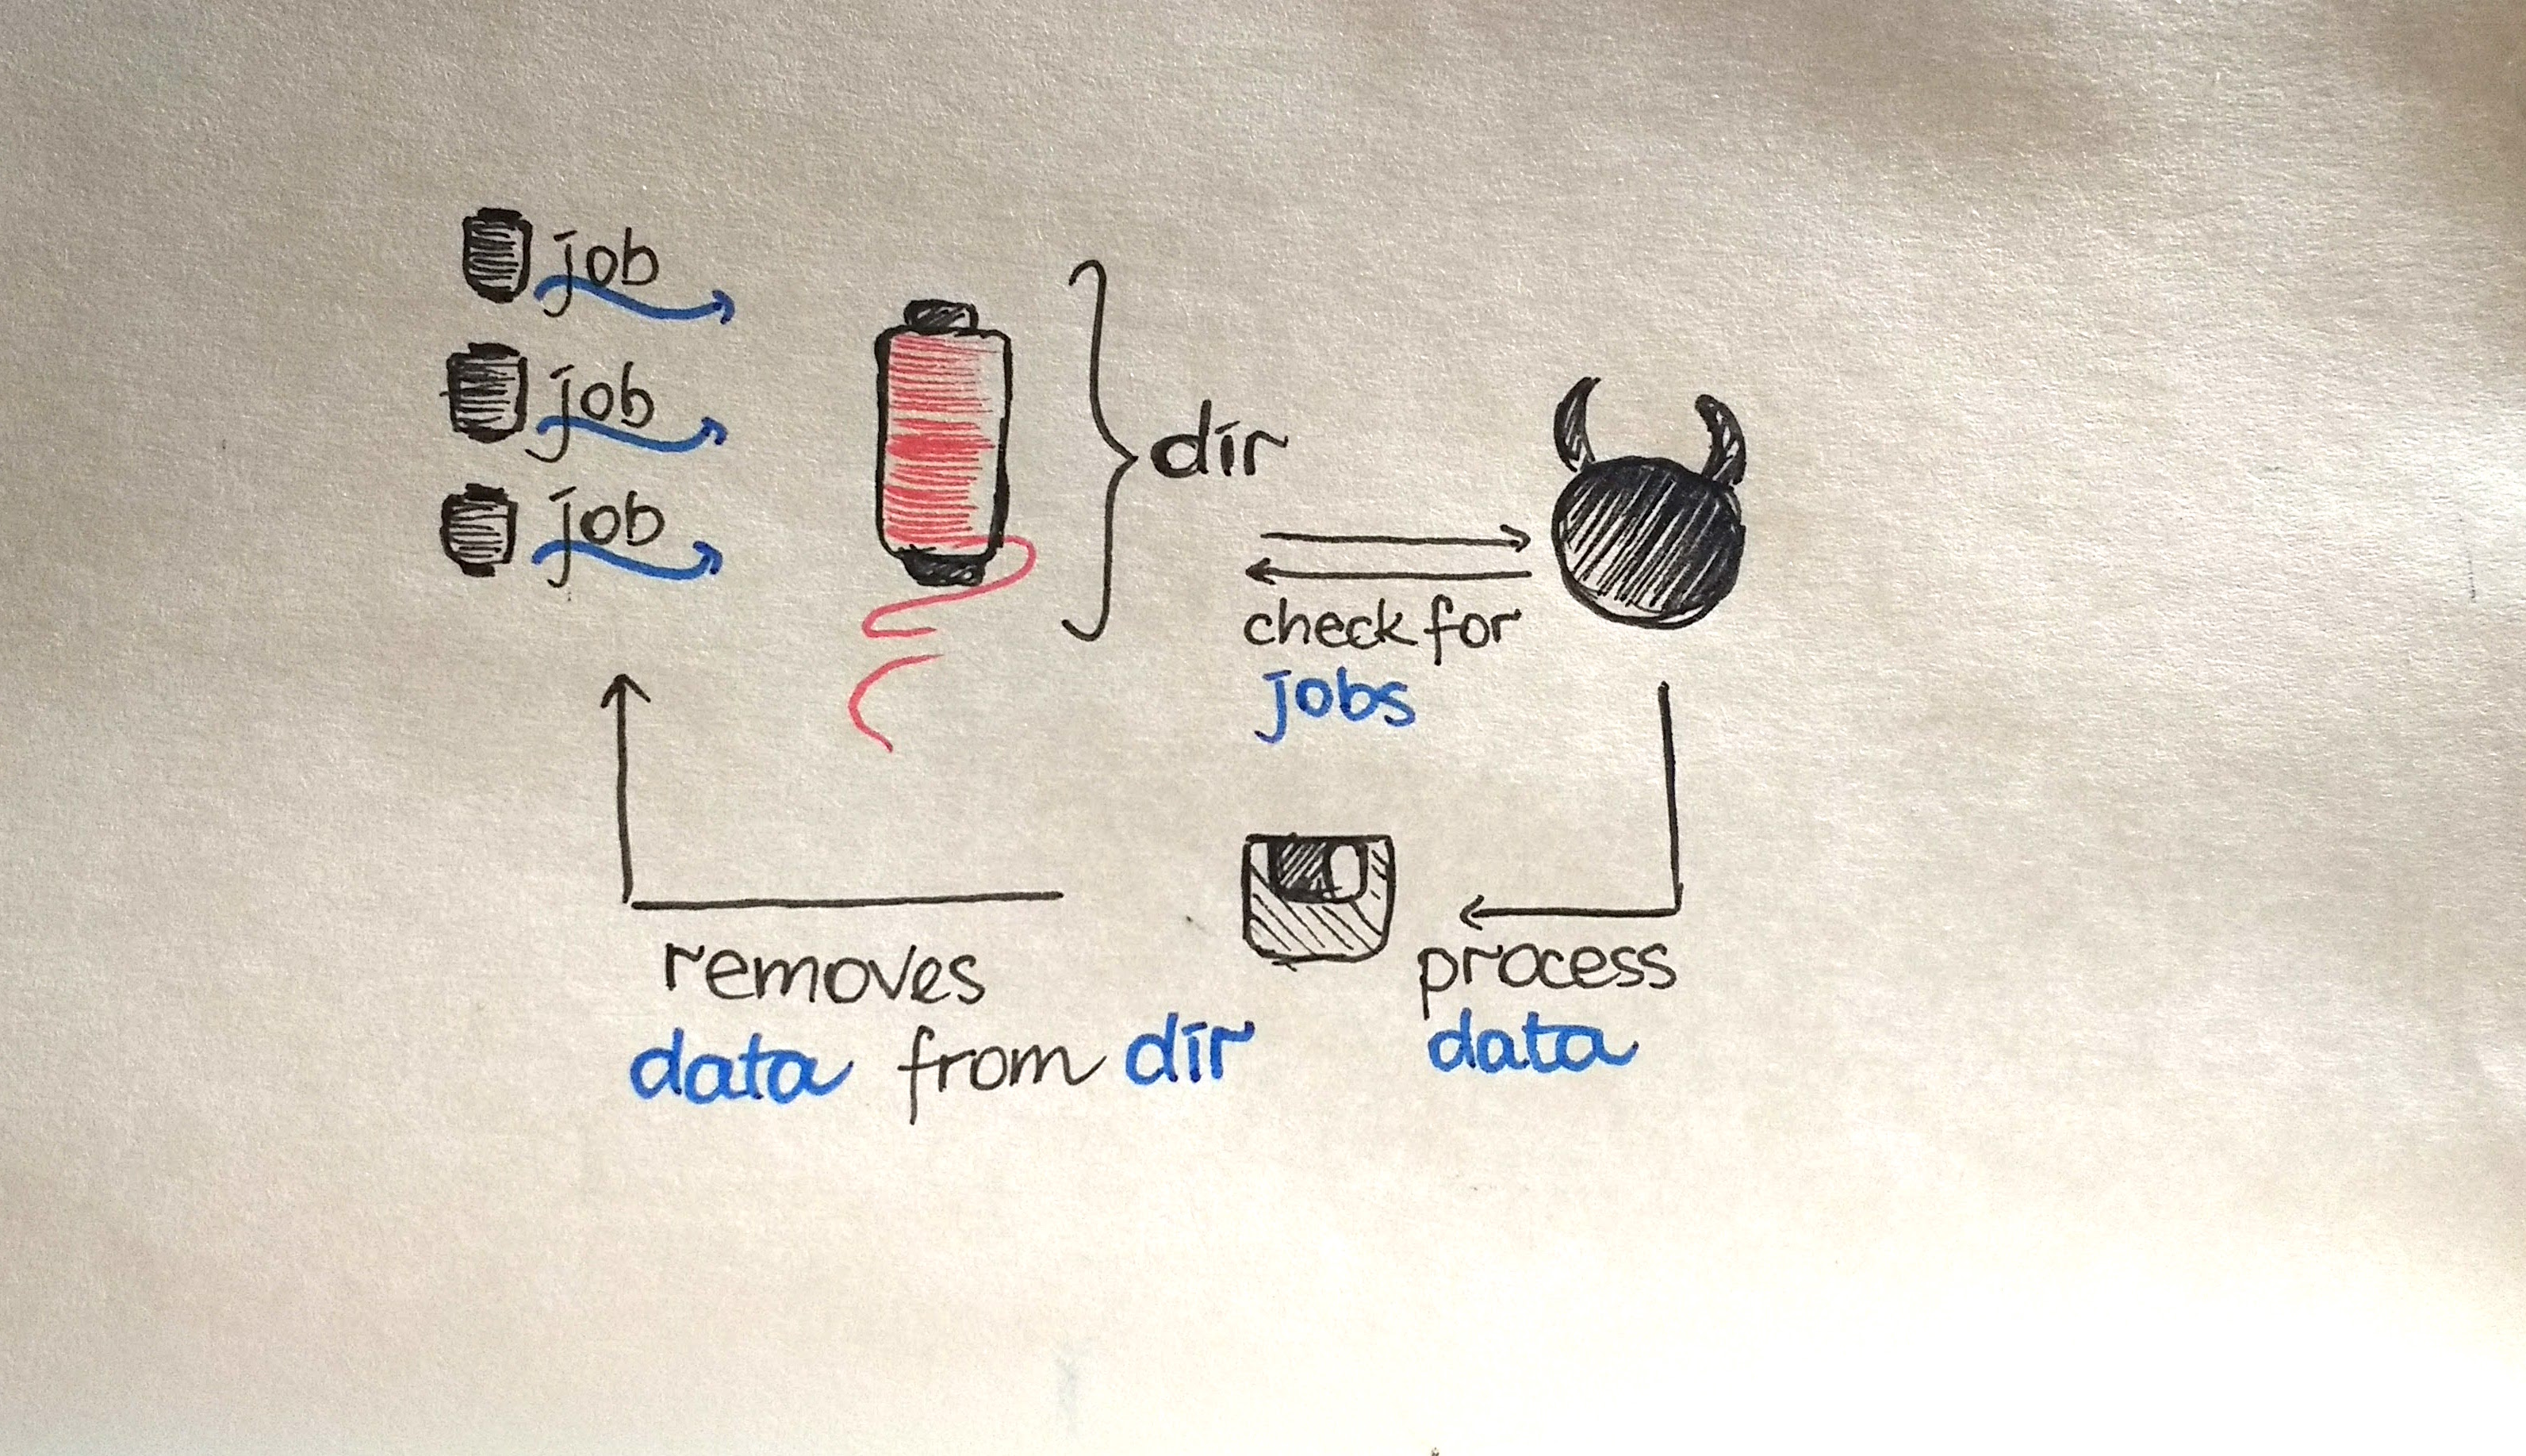 job
job
job
dir
check for
jobs
process
data
removes
data from dir